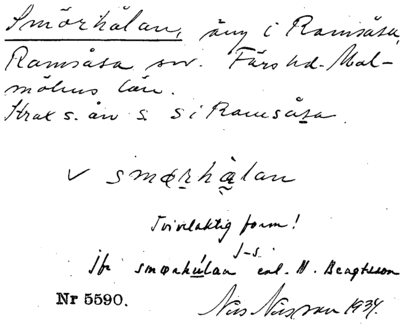 Smörhålan, äng i Ramsåsa,
Ramsåsa sn. Färs hd. Mal-
möhus län.
Strax s. ån s. s i Ramsåsa.
v smørhålan
Tvivelaktig form!
J-s.
Jfr smørhúlan enl. H. Bengtsson
Nr 5590.
Nils Nilsson 1934.